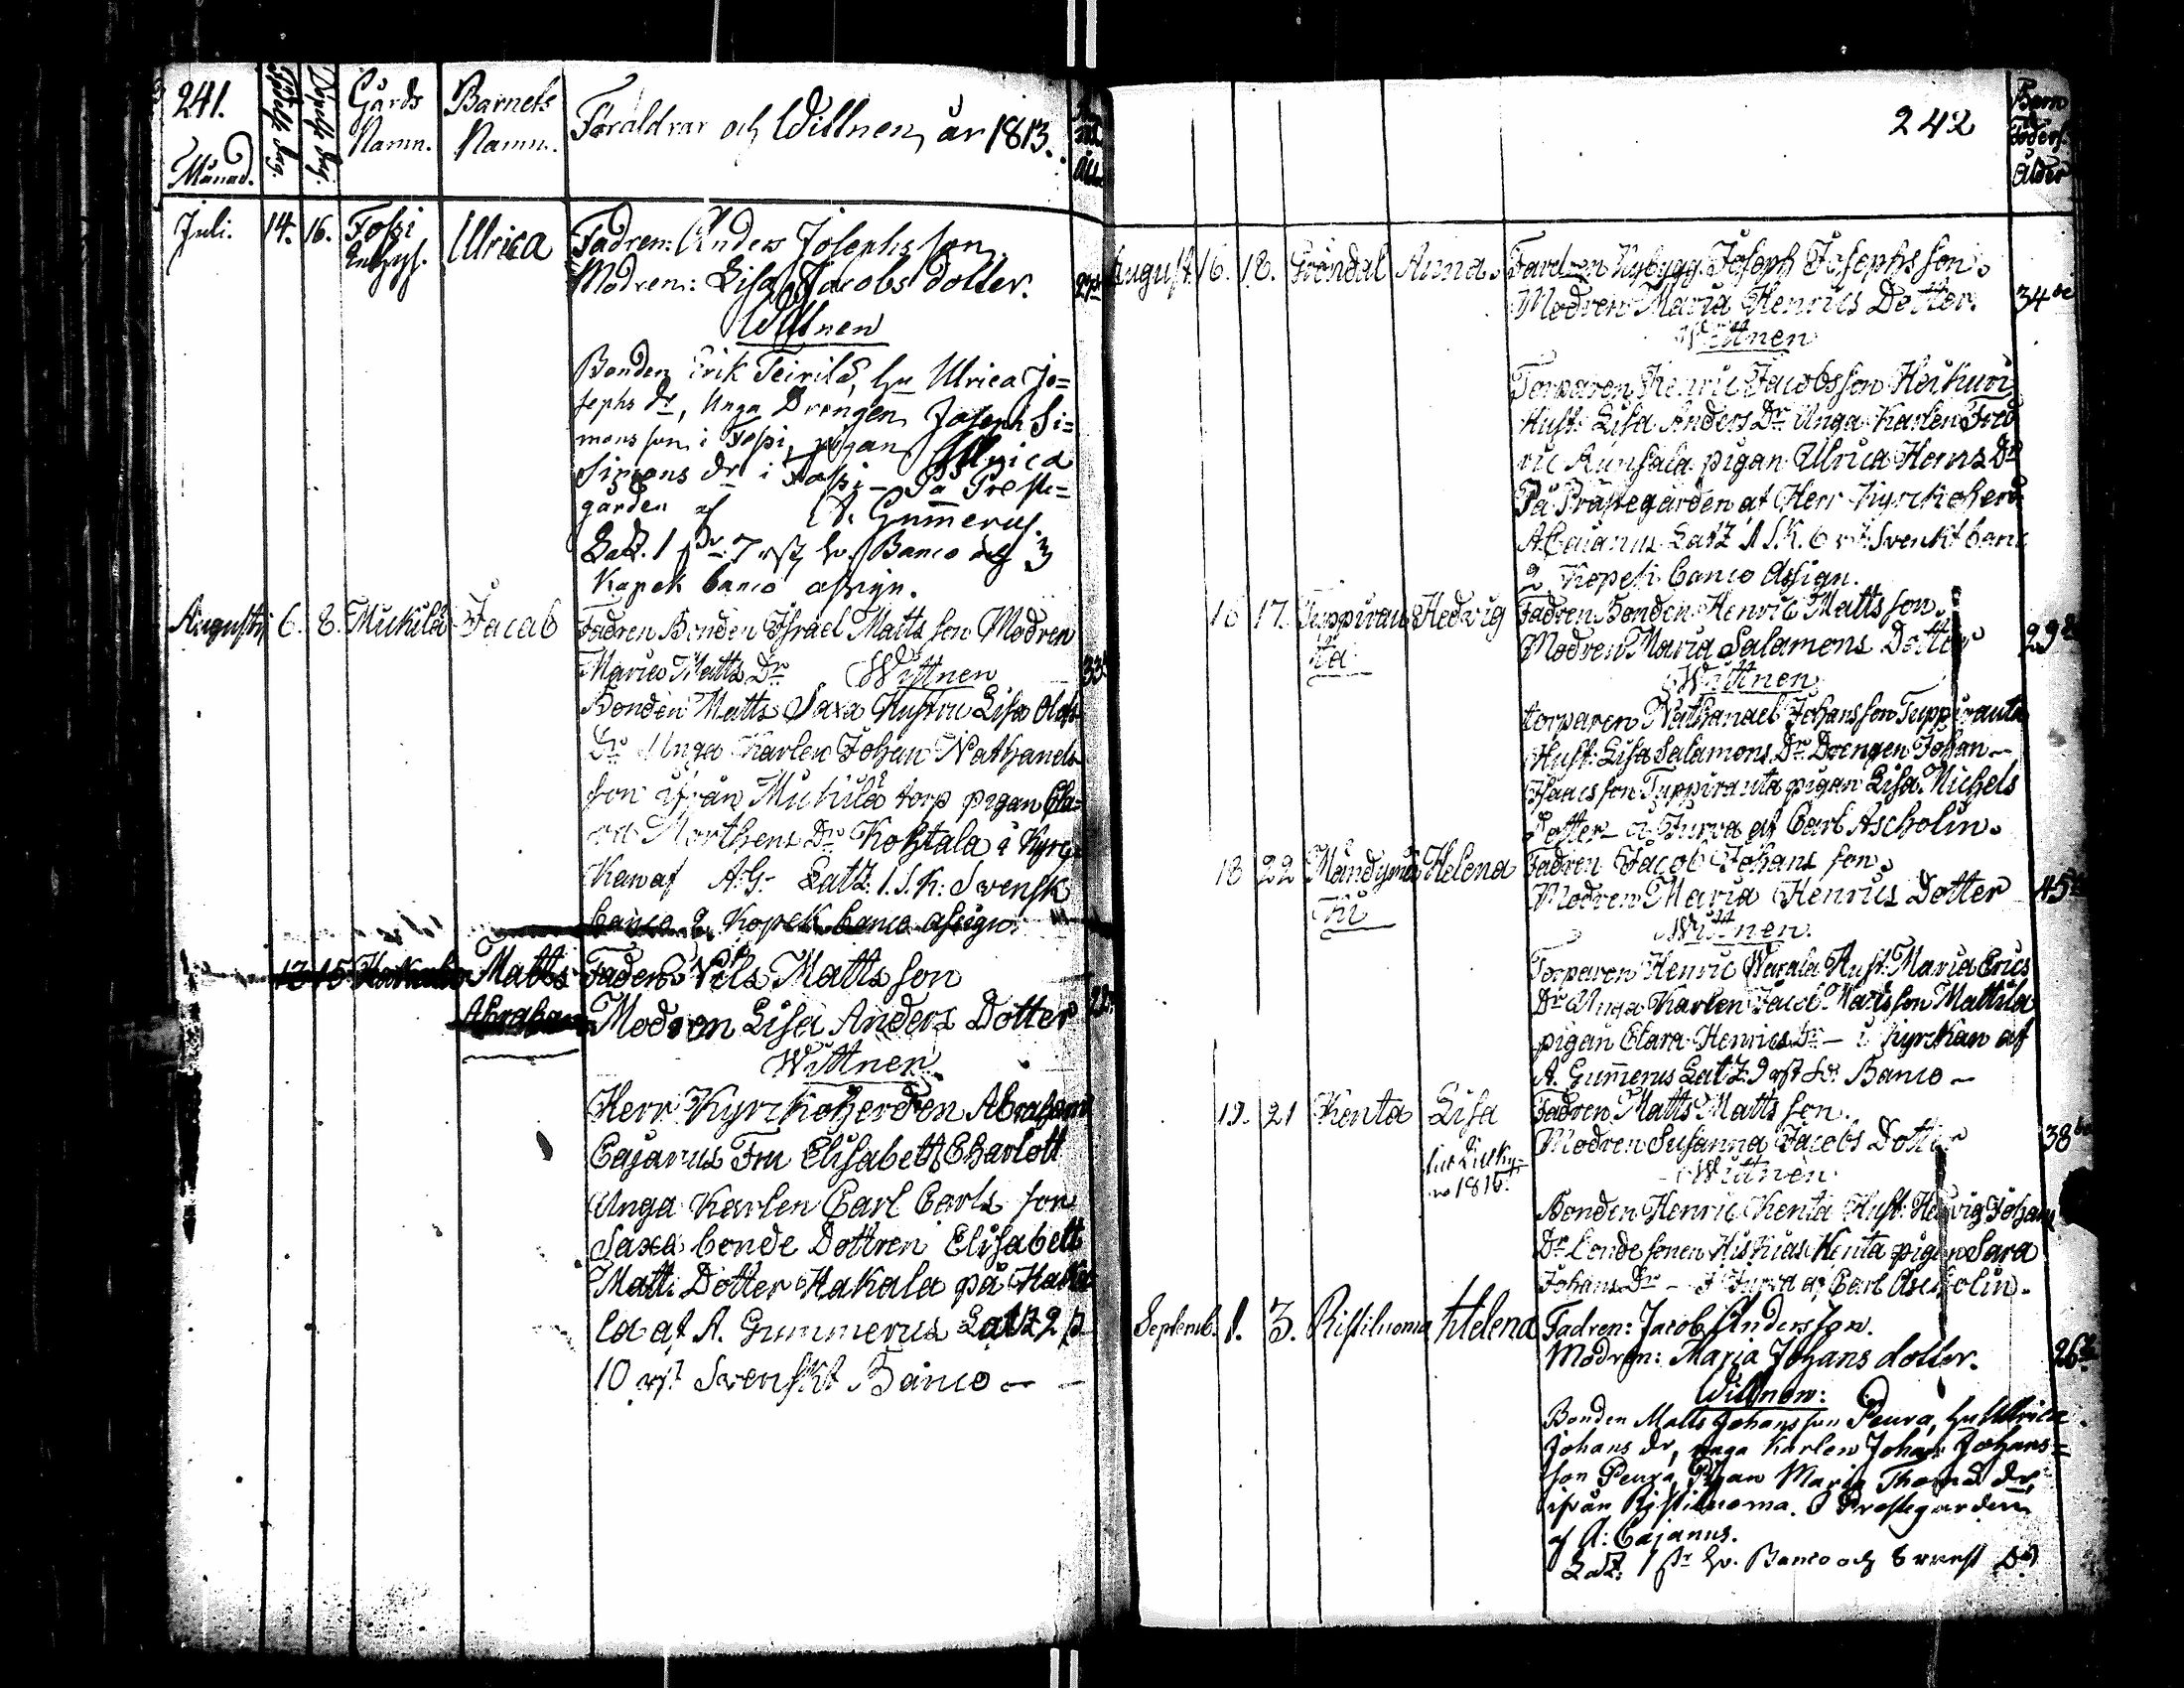 241.
Månad.
Födelse dag.
Döpelse dag.
Gårds
Namn.
Barnets
Namn.
Föräldrar och Wittnen, år 1813.
Juli. 14. 16. Fossi Ulrica Fadren: Anders Josephs son
Modren: Lisa Jacobs dotter.
Wittnen
Bonden Erik Teirilä, hu Ulrica Jo=
sephs dr, Unga Drengen Joseph Si=
mons son i Fossi, pigan Ulrica
Simons dr i Fossi – På Preste=
gården af A. Gummerus.
Latz. 1 sk 7 rst Sv. Banco och 3
Kopek banco assign.
Augusti 6. 8. Mickilä Jacob Fadren Bonden Israel Matts son Modren
Maria Matts Dr Wittnen
Bonden Matts Saxa Hustru Lisa Olofs
Dr Unga Karlen Johan Nathanels
son ifrån Mickilä torp pigan Cla=
ra Morthens Dr Kohtala i Kyrc
Kan af A.G. Latz: 1 S.K: Svensk
banco 2 Kopek banco assign.
13 15 Hakala Matts Fadern Nils Matts son
Abraham Modren Lisa Anders Dotter
Wittnen
Herr Kyrckoherden Abraham
Cajanus Fru Elisabeth Charlott
Unga Karlen Carl Carls son
Saxa bonde Dottren Elisabett
Matts Dotter Hakala på Haka
la af A. Gummerus Latz 2 s
10 rst Svenskt Banco –
242
Barn
Föders.
Ålder
August 16. 18. Gröndal Anna. Fardren Nybygg. Joseph Josephs son.
Modren Maria Henrics Dotter. 34de
Wittnen
Torparen Henric Jacobsson Heikuri
Hust: Lisa Anders Dr Unga Karlen Fred
ric Aunsala pigan Ulrica Henrs Dr
På Prästegården af Herr Kyrckoherd
A Cajanus Latz 1 S.K. 6 rst Svenkt banc
2 Kopek banco Assign.
16 17 Tuppirau Hedvig Fadren Bonden Henric Matts son.
ta Modren Maria Salamons Dotter 29
Wittnen
torparen Nathanael Johans son Tuppirauta
Hust: Lisa Salamons Dr Drengen Johan –
Isaacs son Tuppirauta pigan Lisa Michels
Dotter – i Jurva af Carl Ascholin.
18 22 Mändymä Helena Fadren Jacob Johans son.
ki Modren Maria Henrics Dotter 45
Wittnen
Torparen Henric Warala Hust: Maria Erics
Dr Unga Karlen Jacob Mattsson Mattila
pigan Clara Henrics Dr – i Kyrckan af
A. Gummerus Latz 9 rst Sv. Banco –
19. 21 Kenta Lisa Fadren Matts Matts son.
Modren Susanna Jacobs Dotter 38
1816.
Wittnen
Bonden Henric Kenta Hust: Hedvig Johans
Dr bonde sonen Hiskias Kenta pigan Sara
Johans Dr – I Jurva af Carl Ascholin.
Septemb. 1. 3. Ristiluoma Helena Fadren: Jacob Anders son.
Modren: Maria Johans dotter. 26
Wittnen:
Bonden Matts Johans son Peura, hu Ulrica
Johans dr, unga Karlen Johan Johans=
son Peura, Pigan Maria Thomas dr,
ifrån Ristiluoma. I Prestegården
af A: Cajanus.
Latz: 1 sk Sv. Banco och 8 runst Do